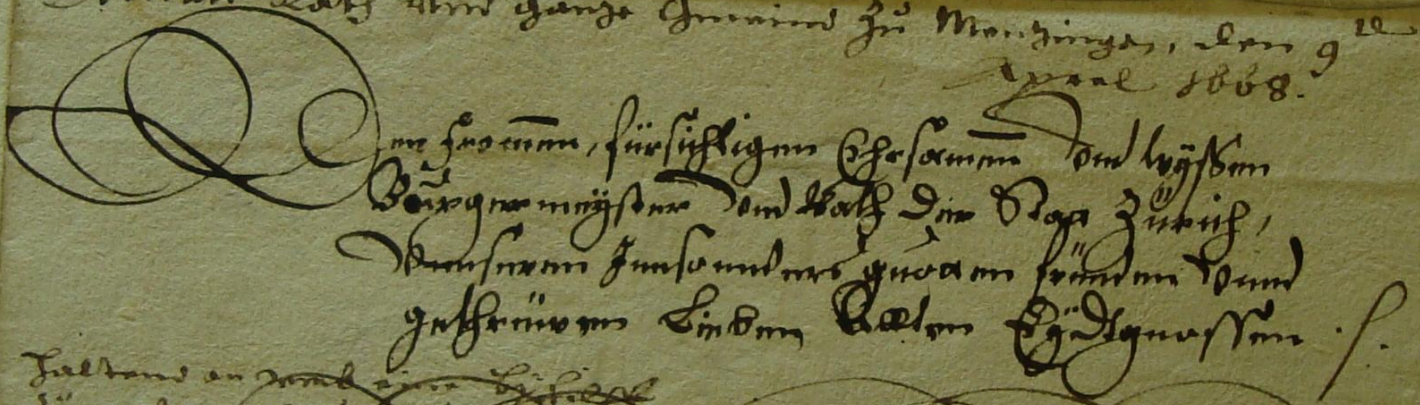 Rath vnd gantze Gmeind zů Mentzingen, den 9
April 1668.
Den frommen, fürsichtigen Ehrsammen Vnd wyssen
Bůrgermeyster Vnd Rath der Statt Zürich,
Vnnseren Innsonnders guotten fründen Vnnd
gethrüwen Lieben Altten Eydtgnossen
haltend an